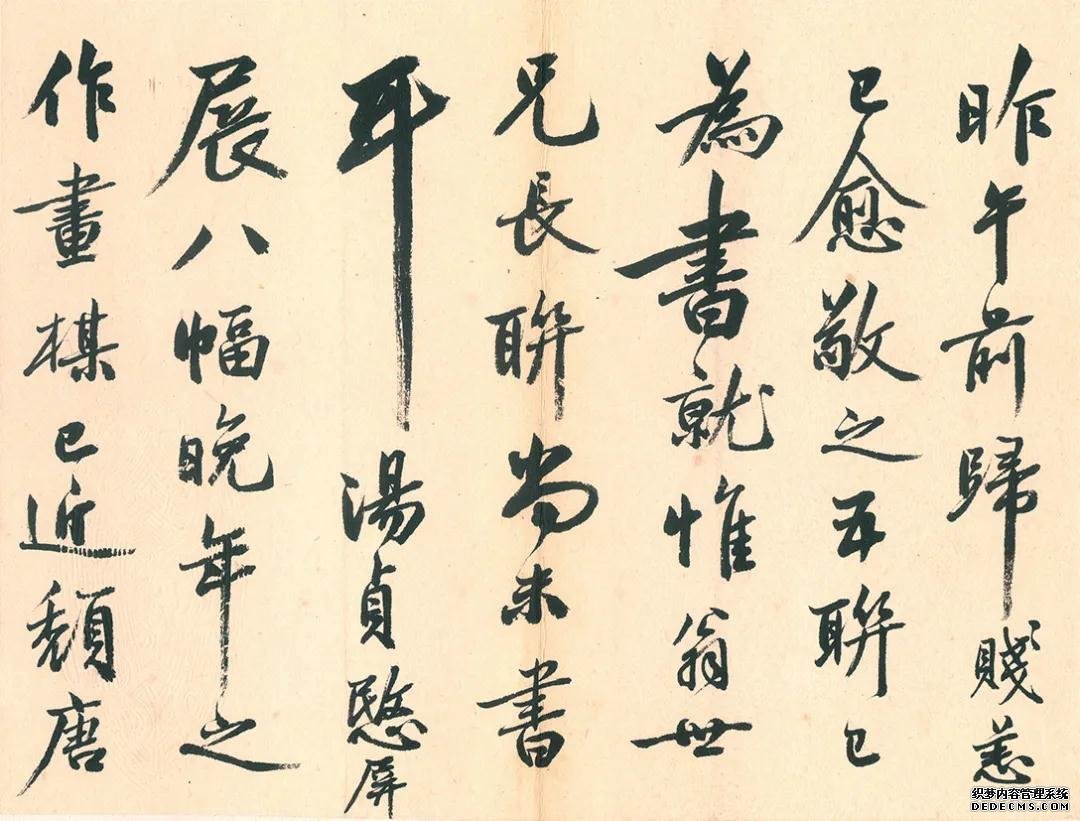 昨午前歸賤恙
已愈敬之五聯已
為書就惟翁世
兄長聯尚未書
耳湯貞愍屏
展八幅晚年之
作畫楳已近頹唐
织梦内容管理系统
DEDECMS.COM